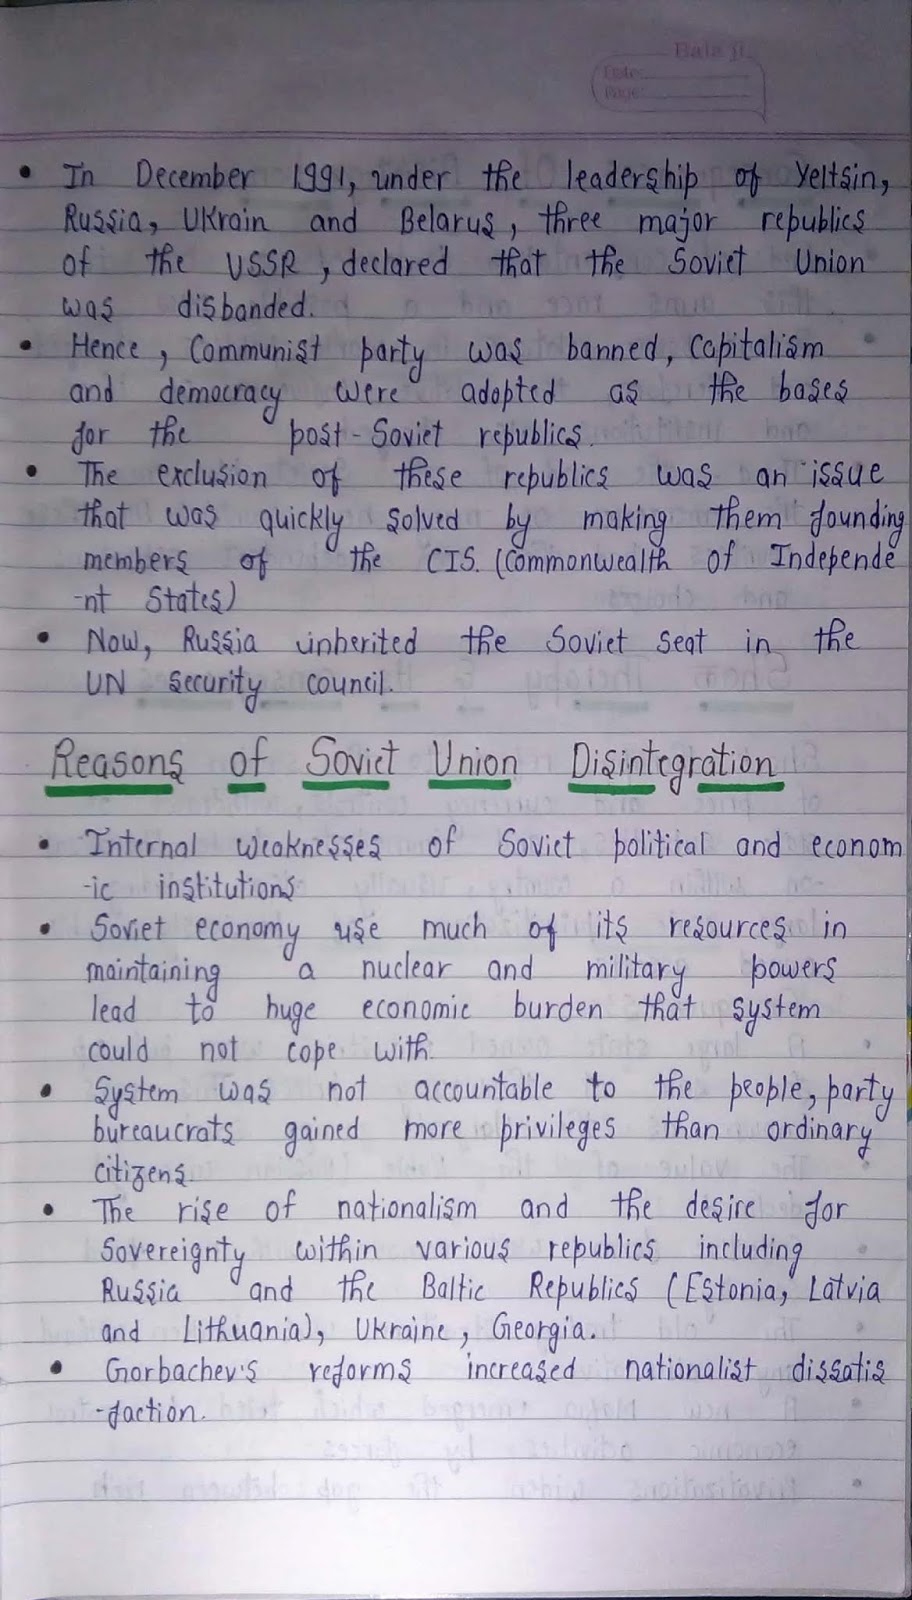 Date:
Page:
• In December 1991, under the leadership of Yeltsin,
Russia, Ukrain and Belarus, three major republics
of the USSR, declared that the Soviet Union
was disbanded.
• Hence, Communist party was banned, Capitalism
and democracy were adopted as the bases
for the post-Soviet republics.
• The exclusion of these republics was an issue
that was quickly solved by making them founding
members of the CIS. (Commonwealth of Independe
-nt States)
• Now, Russia inherited the Soviet seat in the
UN Security council.
Reasons of Soviet Union Disintegration
• Internal weaknesses of Soviet political and econom
-ic institutions
• Soviet economy use much of its resources in
maintaining a nuclear and military powers
lead to huge economic burden that system
could not cope with.
• System was not accountable to the people, party
bureaucrats gained more privileges than ordinary
citizens.
• The rise of nationalism and the desire for
Sovereignty within various republics including
Russia and the Baltic Republics (Estonia, Latvia
and Lithuania), Ukraine, Georgia.
• Gorbachev's reforms increased nationalist dissatis
-faction.